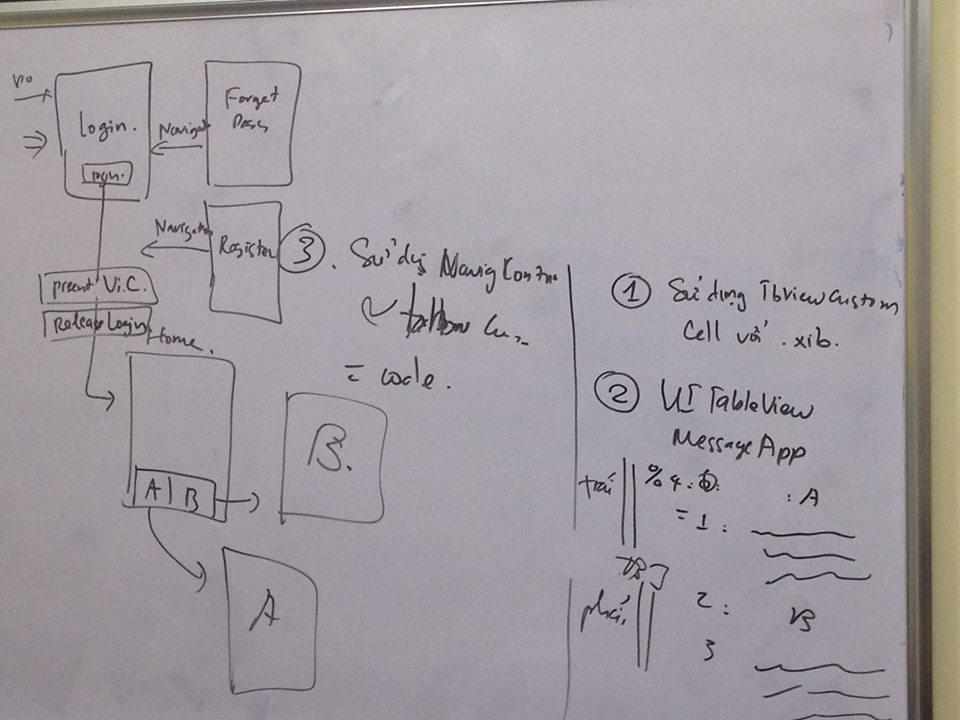 Login.
Login.
Navigat
Forget
Pass
Navigat
Register
present Vi.C.
Release Login
Home.
A | B
B.
A
3. Sử dụng Navig Contro
= code.
1 Sử dụng TbviewCustom
Cell với .xib.
2 UITableView
MessageApp
trái
% 4 : 0 : : A
= 1 :
phải
2 : B
3